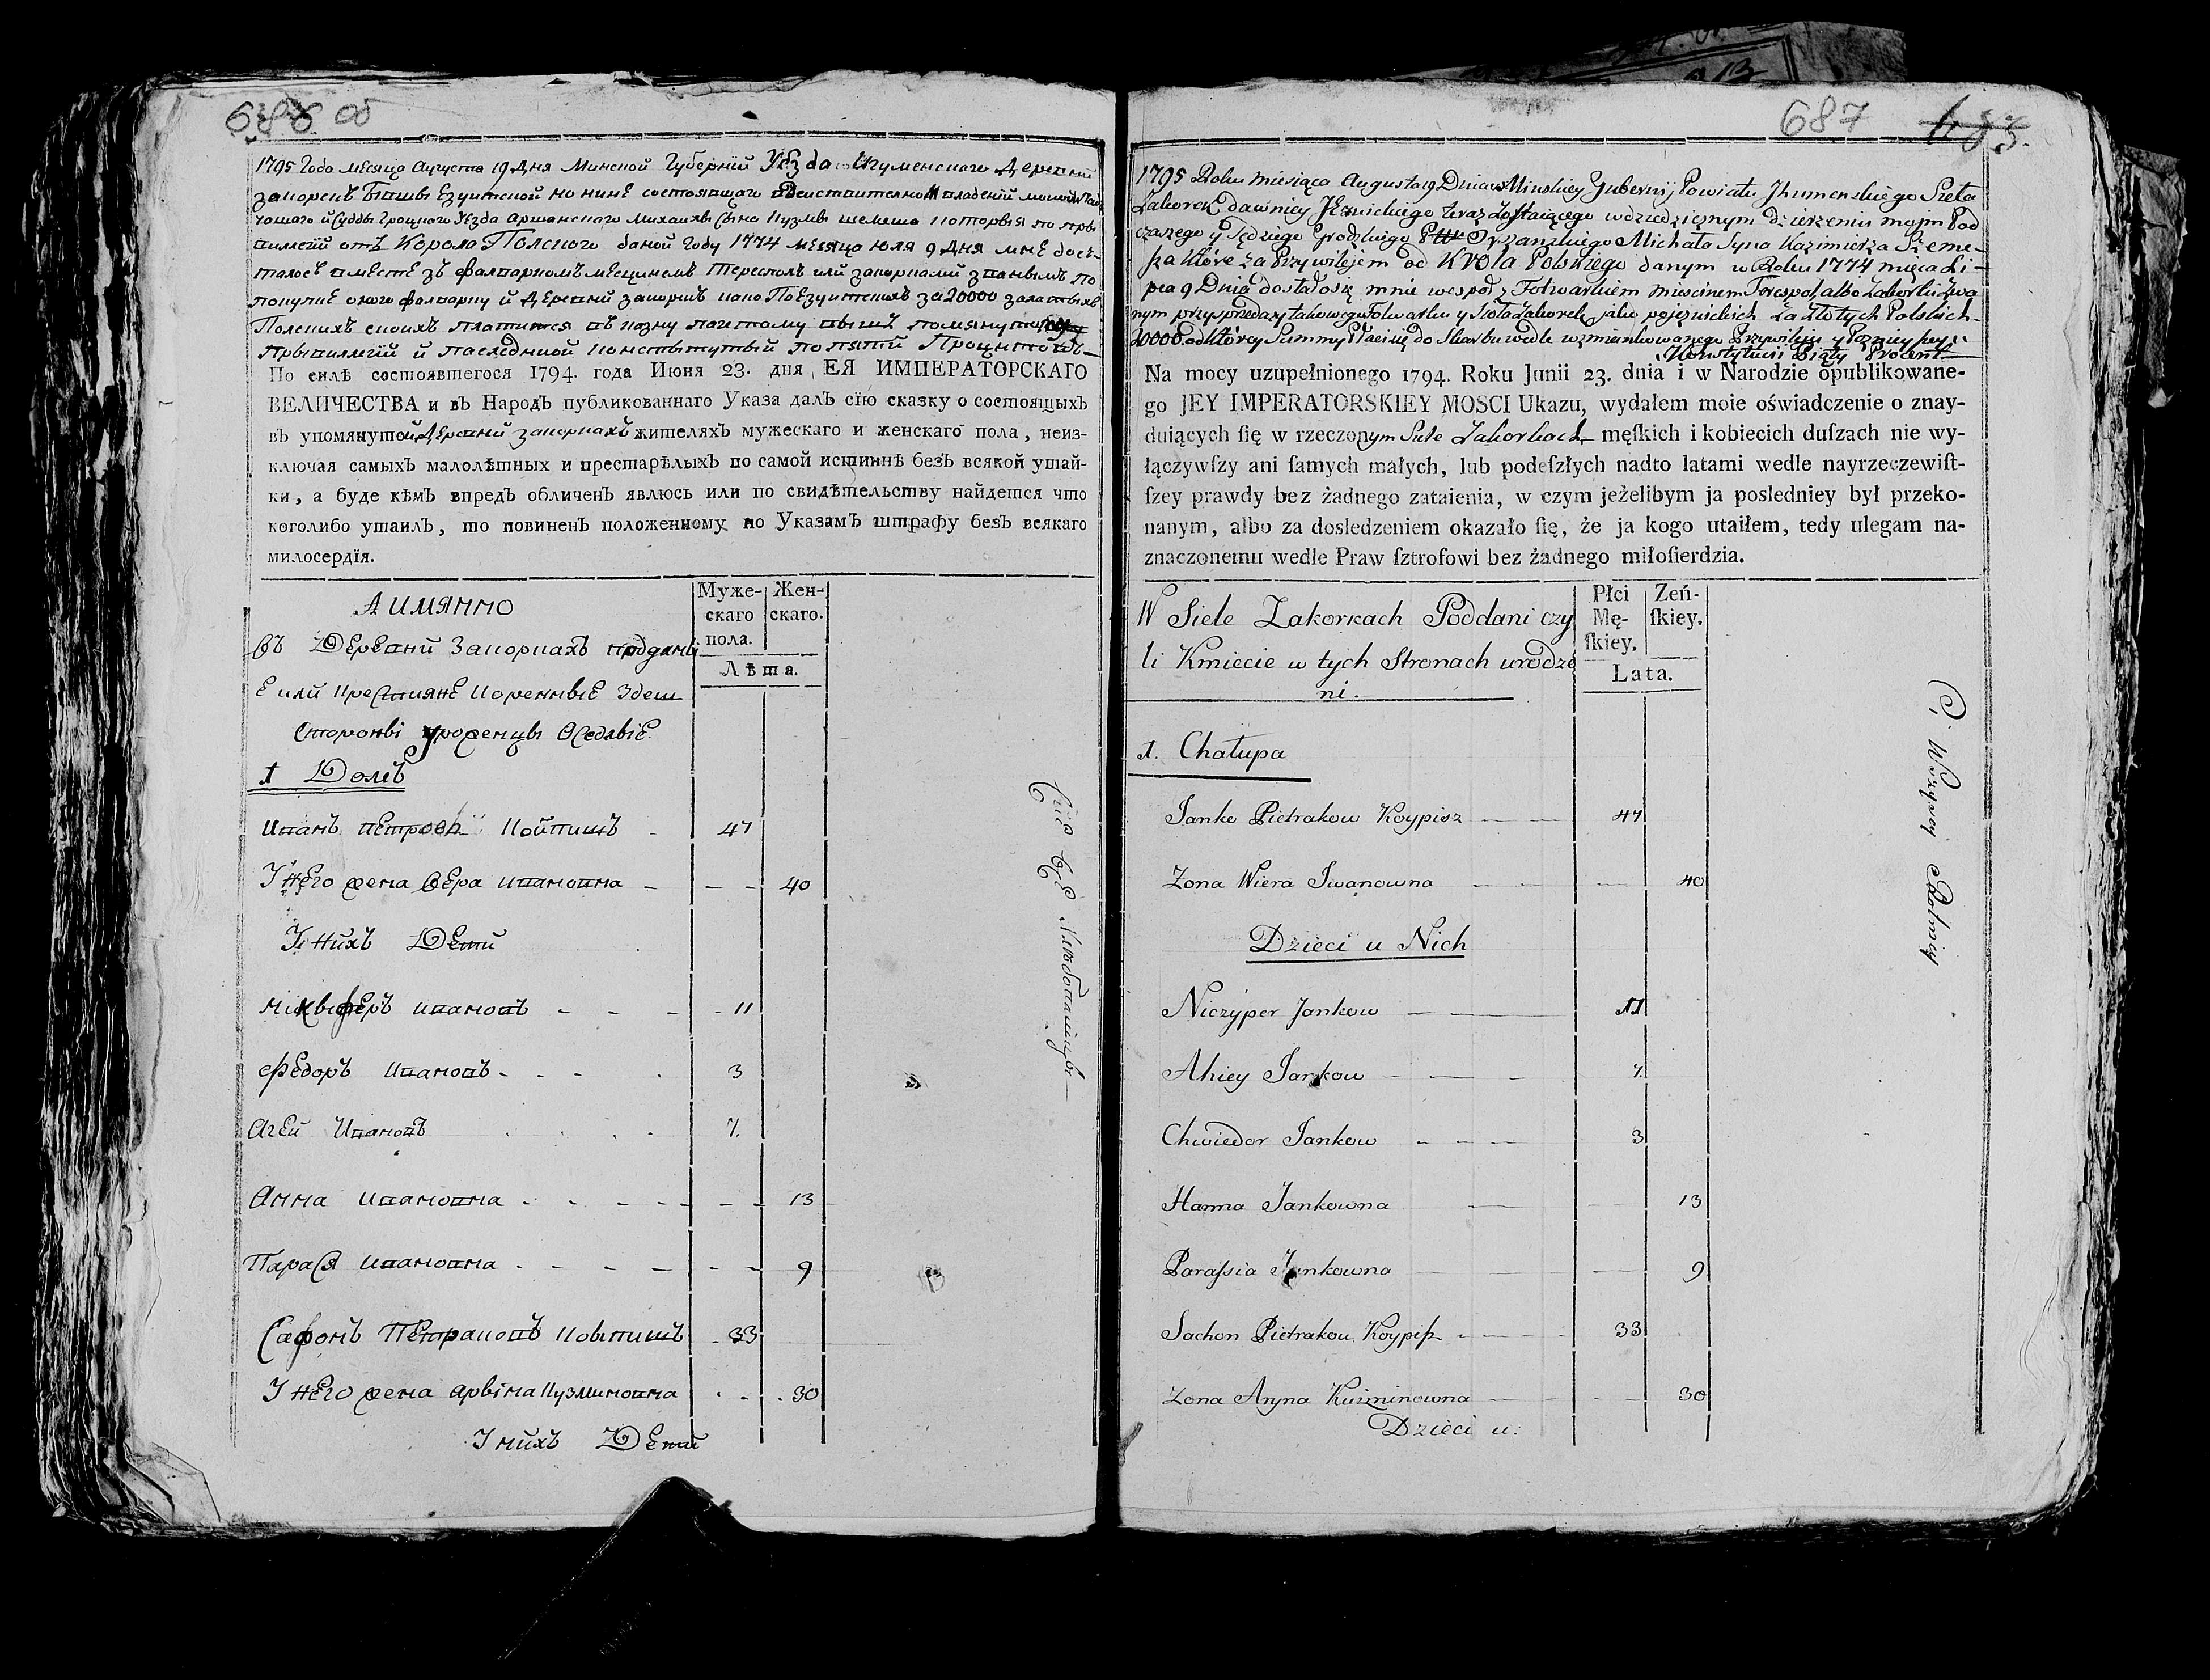 686 об
1795 Года месяца Августа 19 Дня Минской Губернїй Уезда Игуменскаго Деревни
закорекъ Бывшы Езуитской но нинѣ состоявщаго вдеиствителномъ владенїй моемъ Под
чашого й Суддьі Гроцкого Уезда Аршанского Михаила Сына Кузмы шемеша которыя по прьі
вилегїй отъ Короля Полского даной Году 1774 месяца юля 9 Дня мнѣ дос
талосъ вместе зъ фалваркомъ месцинемъ Тересполъ или закорками званымъ по
покупке оного фолварку й деревнй закоркъ како Поезуитскихъ за 20000 залотыхъ
Полскихъ с коихъ платится въ казну по етому выше помянутому
Прывилегїй й последней констытутьій по пятй Процнтовъ
По силѣ состоявшегося 1794. года Июня 23. дня ЕЯ ИМПЕРАТОРСКАГО
ВЕЛИЧЕСТВА и въ Народъ публикованнаго Указа далъ сїю сказку о состоящыхъ
въ упомянутой Деревнй закоркахъ жителяхъ мужескаго и женскаго пола, неиз-
ключая самыхъ малолѣтныхъ и престарѣлыхъ по самой истиннѣ безъ всякой утай-
ки, а буде кѣмъ впредъ обличенъ явлюсь или по свидѣтельству найдется что
коголибо утаилъ, то повиненъ положенному по Указамъ штрафу безъ всякаго
милосердїя.
А ИМЯННО
Муже-скаго пола.
Жен-скаго.
Лѣта.
Въ Деревни Закоркахъ подданы
е или крестияне коренные здеш
стороны уроженцы оседлые
1 Домъ
Иванъ петровъ Койпишъ - 47
У него жена Вера Ивановна - - - 40
У нихъ Дети
никыферъ ивановъ - - - 11
Федоръ Ивановъ - - - 3
Агей Ивановъ 7.
Анна Ивановна - - - - - - 13
Парася Ивановна - - - - - - 9
Сафонъ Петраковъ Койпишъ 33
У него жена арына Кузминовна - 30
У нихъ Дети
687
1795 Roku Miesiąca Augusta 19 Dnia w Minskiey Gubernij Powiatu Jhumenskiego Sieła
Zakorek dawniey Jezuickiego teraz zostaiącego w dziedzicznym dzierżeniu mojm Pod
czaszego y Sędziego Grodzkiego Pttu Orszanskiego Michała Syna Kazimierza Szeme-
sza które za Przywilejem od Krola Polskiego danym w Roku 1774 mięca Li-
pca 9 Dnia dostałosię mnie wespoł z Folwarkiem mieiscinem Terespol albo Zakorki zwa
nym przy sprzedaży takowego Folwarku y Sioła Zakorek jako pojezuickich za złotych Polskich
20000 od ktorey Summy Płaci się do Skarbu wedle wzmiankowanego Przywileju y Pozniejszey
Konstytucii Piąty Procent
Na mocy uzupełnionego 1794. Roku Junii 23. dnia i w Narodzie opublikowane-
go JEY IMPERATORSKIEY MOSCI Ukazu, wydałem moie oświadczenie o znay-
duiących ſię w rzeczonym Siele Zakorkach męſkich i kobiecich duſzach nie wy-
łączywſzy ani ſamych małych, lub podeſzłych nadto latami wedle nayrzeczewiſt-
ſzey prawdy bez żadnego zataienia, w czym jeżelibym ja posledniey był przeko-
nanym, albo za dosledzeniem okazało ſię, że ja kogo utaiłem, tedy ulegam na-
znaczonemu wedle Praw ſztrofowi bez żadnego miłoſierdzia.
Płci Mę-ſkiey.
Zeń-ſkiey.
Lata.
W Siele Zakorkach Poddani czy
li Kmiecie w tych Stronach urodze
ni.
1. Chałupa
Janko Pietrakow Koypisz 47
Zona Wiera Jwanowna 40
Dzieci u Nich
Niczyper Jankow 11
Ahiey Jankow 7.
Chwiedor Jankow 3
Hanna Jankowna 13
Paraſsia Jankowna 9
Sachon Pietrakow Koypiſz 33
Zona Aryna Kuzminowna 30
Dzieci u:
Ci Wszyscy Rolnicy